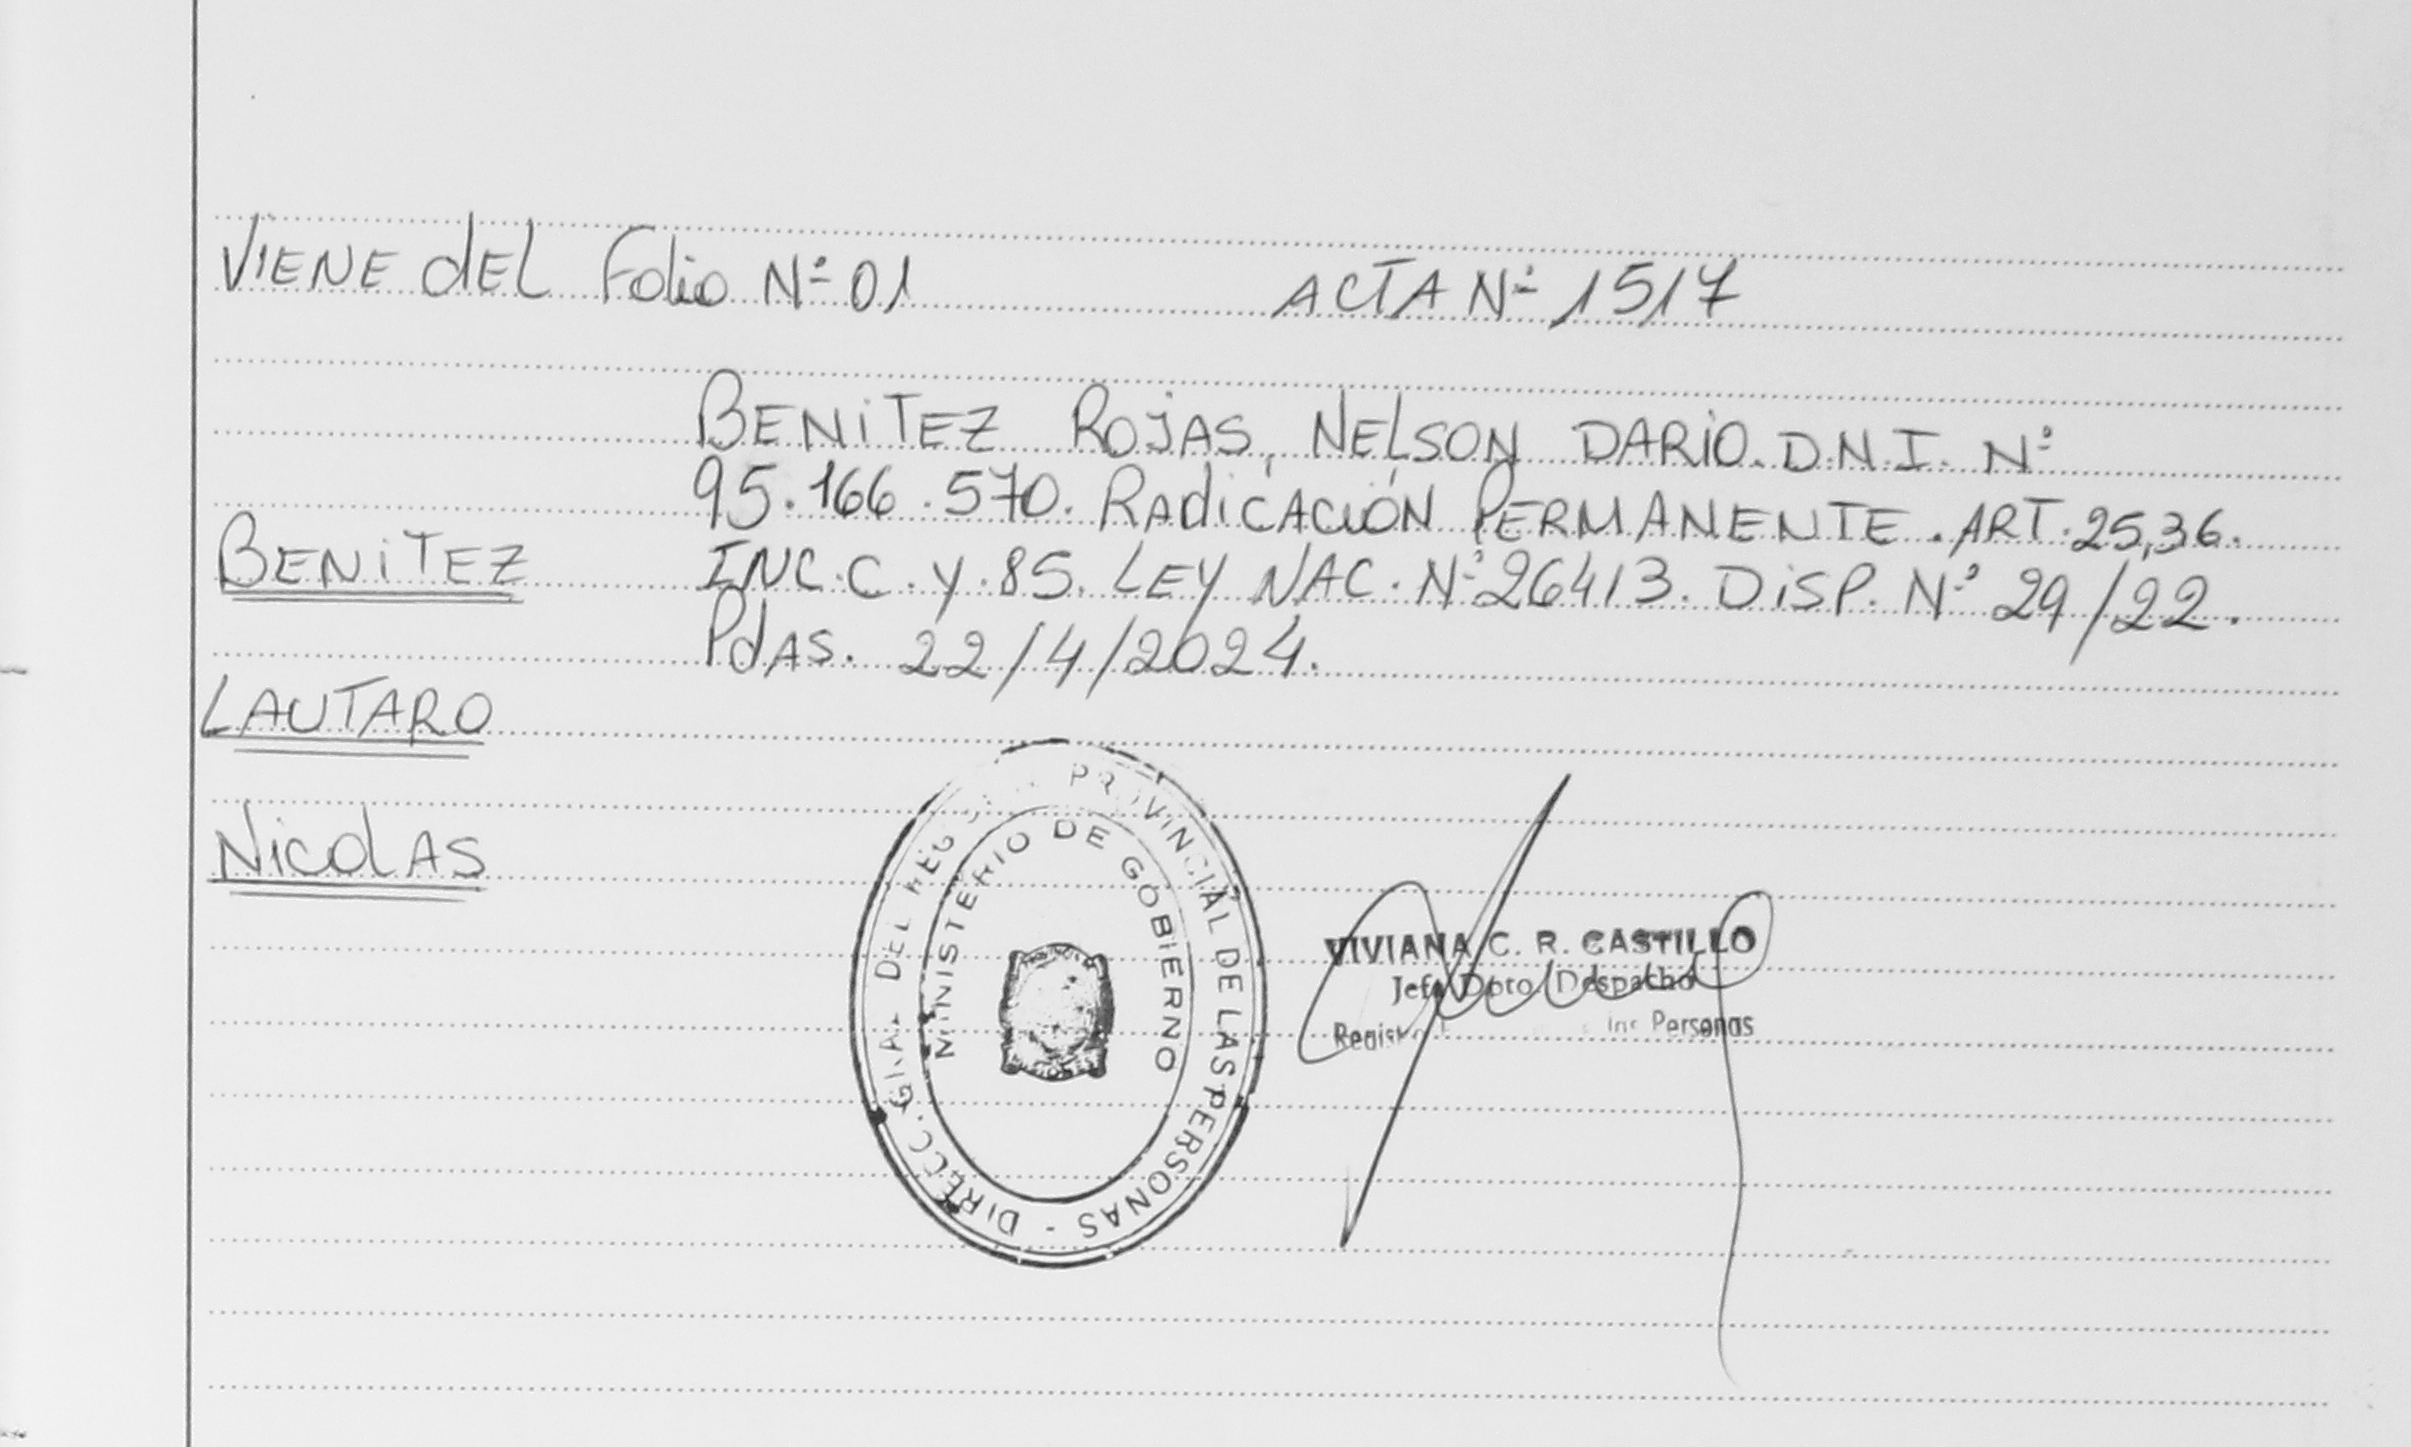 VIENE dEL Folio Nº 01 ACTA Nº 1517
BENITEZ ROJAS, NELSON DARIO. D.N.I. Nº
95.166.570. RADICACIÓN PERMANENTE. ART. 25,36.
BENITEZ
INC. C. Y. 85. LEY NAC. Nº 26413. DISP. Nº 29/22.
PdAS. 22/4/2024.
LAUTARO
NICOLAS
DIRECC. GRAL DEL REG PROVINCIAL DE LAS PERSONAS -
MINISTERIO DE GOBIERNO
VIVIANA C. R. CASTILLO
Jefe Dpto Despacho
Personas